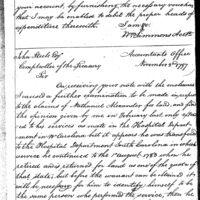 your account, by furnishing the necessary vouchers
that I may be enabled to debit the proper heads of
expenditure therewith. I am &c
Wm Simmons Acctt
John Steele Esqr
Comptroller of the Treasury
Accountants Office
November 8th 1797
Sir
On receiving your note with the enclosures
I caused a further examination to be made respecting
to the claims of Nathaniel Alexander for land, and find
the opinion given by me in February last only
to his services as mate in the Hospital Depart
ment in No Carolina but it appears he was transferred
to the Hospital Department South Carolina in which
service he continued to the 1st August 1783 when he
retired and is entitled to land as one of the
that date, but before the warrant can be issued it
will be necessary for him to identify himself to be
the same person who performed the service, then he